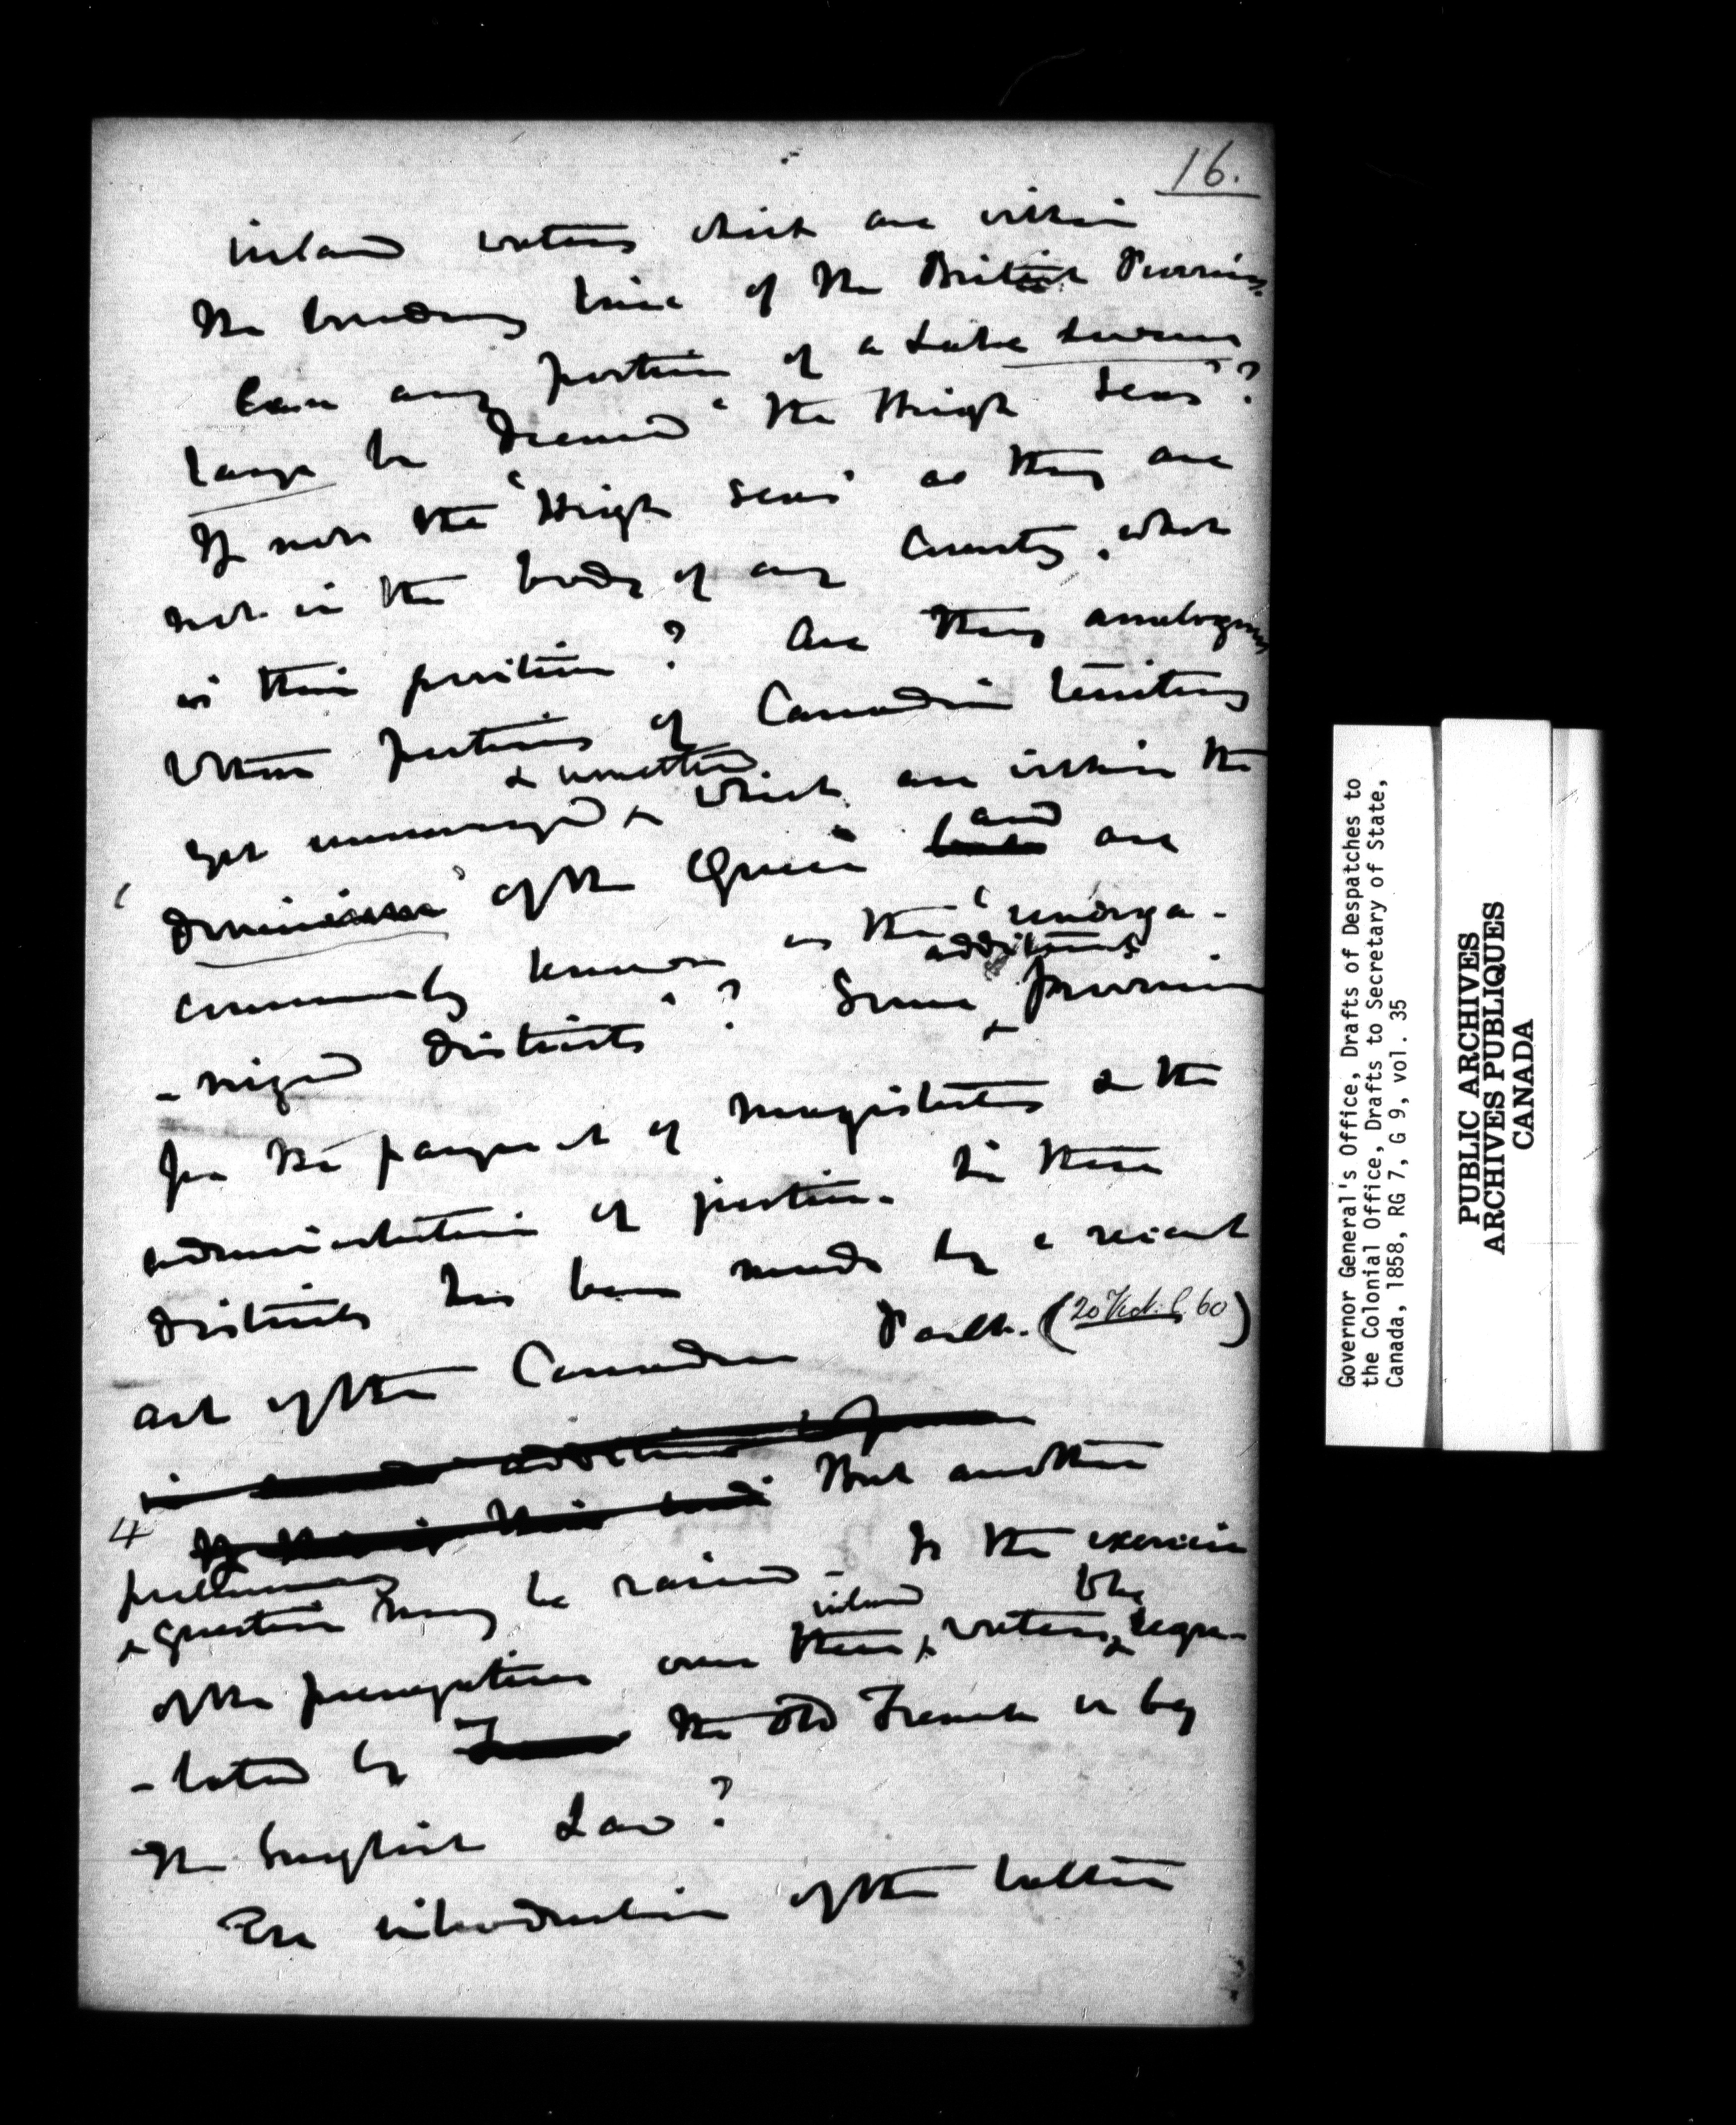 16.
inland waters which are within
the boundary line of the British Province.
Can any portion of a Lake however
large be deemed "the High Seas"?
If not the 'High Seas' as they are
not in the body of any County, what
is their position? Are they analogous
to those portions of Canadian territory
& unsettled
yet unsurveyed which are within the
dominions of the Queen and are
commonly known as the 'unorga-
additional
-nized districts'? Some provision
for the payment of magistrates & the
administration of justice in these
districts has been made by a recent
act of the Canadian Parlt. (20 Vict. C 60)
in additional
4 If But another
preliminary
question may be raised - Is the exercise
inland the
of the prerogative over these waters regu-
-lated by the old French or by
the English Law?
The introduction of the latter
Governor General's Office, Drafts of Despatches to
the Colonial Office, Drafts to Secretary of State,
Canada, 1858, RG 7, G 9, vol. 35
PUBLIC ARCHIVES
ARCHIVES PUBLIQUES
CANADA